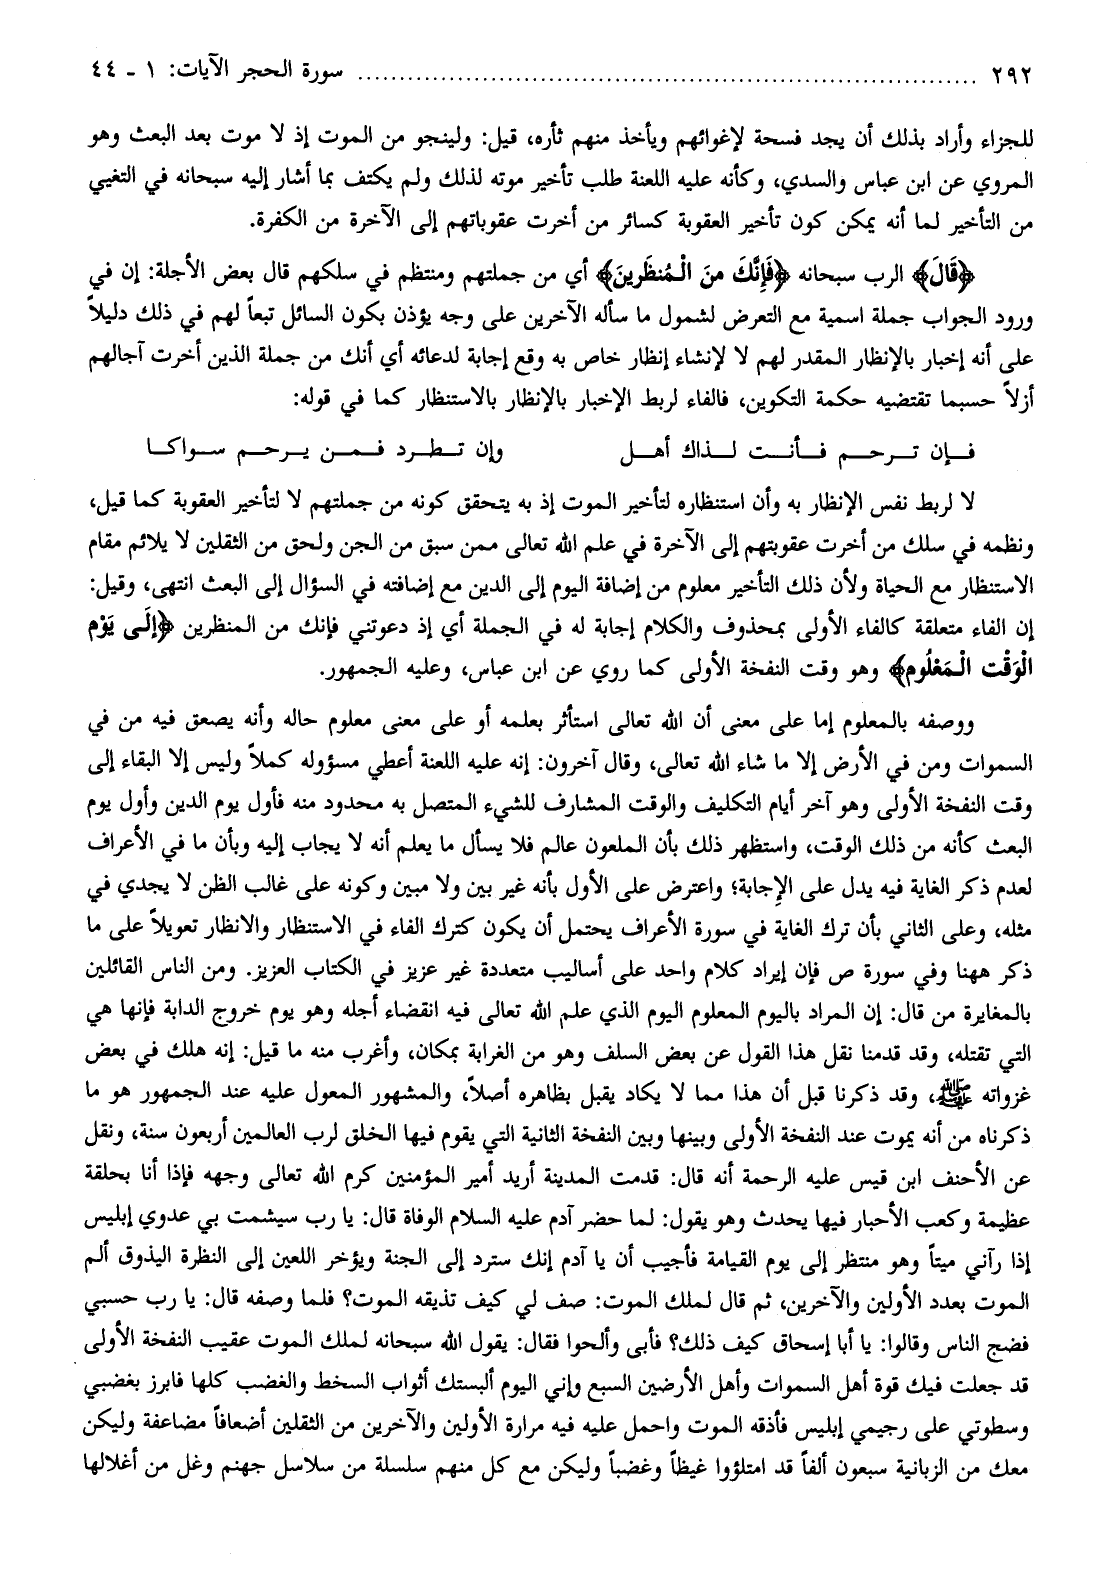 ٢٩٢ ........................................................................... سورة الحجر الآيات: ١ - ٤٤
للجزاء وأراد بذلك أن يجد فسحة لإغوائهم ويأخذ منهم ثأره، قيل: ولينجو من الموت إذ لا موت بعد البعث وهو
المروي عن ابن عباس والسدي، وكأنه عليه اللعنة طلب تأخير موته لذلك ولم يكتف بما أشار إليه سبحانه في التغيي
من التأخير لما أنه يمكن كون تأخير العقوبة كسائر من أخرت عقوباتهم إلى الآخرة من الكفرة.
﴿قَالَ﴾ الرب سبحانه ﴿فَإِنَّكَ منَ الْمُنظَرينَ﴾ أي من جملتهم ومنتظم في سلكهم قال بعض الأجلة: إن في
ورود الجواب جملة اسمية مع التعرض لشمول ما سأله الآخرين على وجه يؤذن بكون السائل تبعاً لهم في ذلك دليلاً
على أنه إخبار بالإنظار المقدر لهم لا لإنشاء إنظار خاص به وقع إجابة لدعائه أي أنك من جملة الذين أخرت آجالهم
أزلاً حسبما تقتضيه حكمة التكوين، فالفاء لربط الإخبار بالإنظار بالاستنظار كما في قوله:
فــإن تــرحــم فــأنــت لــذاك أهــل وإن تــطــرد فــمــن يــرحــم ســواكــا
لا لربط نفس الإنظار به وأن استنظاره لتأخير الموت إذ به يتحقق كونه من جملتهم لا لتأخير العقوبة كما قيل،
ونظمه في سلك من أخرت عقوبتهم إلى الآخرة في علم الله تعالى ممن سبق من الجن ولحق من الثقلين لا يلائم مقام
الاستنظار مع الحياة ولأن ذلك التأخير معلوم من إضافة اليوم إلى الدين مع إضافته في السؤال إلى البعث انتهى، وقيل:
إن الفاء متعلقة كالفاء الأولى بمحذوف والكلام إجابة له في الجملة أي إذ دعوتني فإنك من المنظرين ﴿إلَى يَوْم
الْوَقْت الْمَعْلُوم﴾ وهو وقت النفخة الأولى كما روي عن ابن عباس، وعليه الجمهور.
ووصفه بالمعلوم إما على معنى أن الله تعالى استأثر بعلمه أو على معنى معلوم حاله وأنه يصعق فيه من في
السموات ومن في الأرض إلا ما شاء الله تعالى، وقال آخرون: إنه عليه اللعنة أعطي مسؤوله كملاً وليس إلا البقاء إلى
وقت النفخة الأولى وهو آخر أيام التكليف والوقت المشارف للشيء المتصل به محدود منه فأول يوم الدين وأول يوم
البعث كأنه من ذلك الوقت، واستظهر ذلك بأن الملعون عالم فلا يسأل ما يعلم أنه لا يجاب إليه وبأن ما في الأعراف
لعدم ذكر الغاية فيه يدل على الإجابة؛ واعترض على الأول بأنه غير بين ولا مبين وكونه على غالب الظن لا يجدي في
مثله، وعلى الثاني بأن ترك الغاية في سورة الأعراف يحتمل أن يكون كترك الفاء في الاستنظار والانظار تعويلاً على ما
ذكر ههنا وفي سورة ص فإن إيراد كلام واحد على أساليب متعددة غير عزيز في الكتاب العزيز. ومن الناس القائلين
بالمغايرة من قال: إن المراد باليوم المعلوم اليوم الذي علم الله تعالى فيه انقضاء أجله وهو يوم خروج الدابة فإنها هي
التي تقتله، وقد قدمنا نقل هذا القول عن بعض السلف وهو من الغرابة بمكان، وأغرب منه ما قيل: إنه هلك في بعض
غزواته ﷺ، وقد ذكرنا قبل أن هذا مما لا يكاد يقبل بظاهره أصلاً، والمشهور المعول عليه عند الجمهور هو ما
ذكرناه من أنه يموت عند النفخة الأولى وبينها وبين النفخة الثانية التي يقوم فيها الخلق لرب العالمين أربعون سنة، ونقل
عن الأحنف ابن قيس عليه الرحمة أنه قال: قدمت المدينة أريد أمير المؤمنين كرم الله تعالى وجهه فإذا أنا بحلقة
عظيمة وكعب الأحبار فيها يحدث وهو يقول: لما حضر آدم عليه السلام الوفاة قال: يا رب سيشمت بي عدوي إبليس
إذا رآني ميتاً وهو منتظر إلى يوم القيامة فأجيب أن يا آدم إنك سترد إلى الجنة ويؤخر اللعين إلى النظرة اليذوق ألم
الموت بعدد الأولين والآخرين، ثم قال لملك الموت: صف لي كيف تذيقه الموت؟ فلما وصفه قال: يا رب حسبي
فضج الناس وقالوا: يا أبا إسحاق كيف ذلك؟ فأبى وألحوا فقال: يقول الله سبحانه لملك الموت عقيب النفخة الأولى
قد جعلت فيك قوة أهل السموات وأهل الأرضين السبع وإني اليوم ألبستك أثواب السخط والغضب كلها فابرز بغضبي
وسطوتي على رجيمي إبليس فأذقه الموت واحمل عليه فيه مرارة الأولين والآخرين من الثقلين أضعافاً مضاعفة وليكن
معك من الزبانية سبعون ألفاً قد امتلؤوا غيظاً وغضباً وليكن مع كل منهم سلسلة من سلاسل جهنم وغل من أغلالها